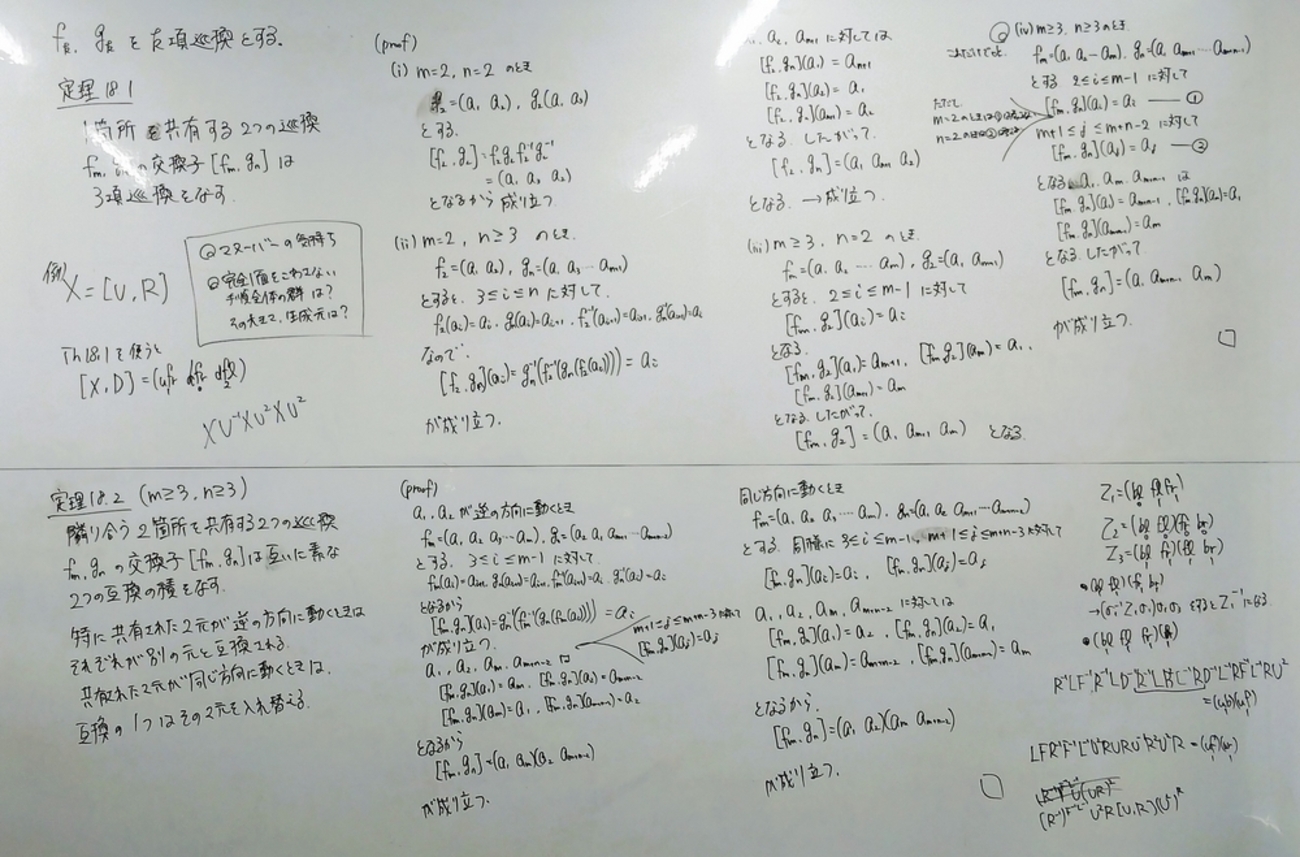 f_k, g_k を k項巡換とする.
定理18.1
1箇所を共有する2つの巡換
f_m, g_n の交換子 [f_m, g_n] は
3項巡換をなす.
例 X = [U, R]
の気持ち
完全1面をこわさない
手順全体の群は?
その大きさ, 生成元は?
Th18.1を使うと
[X, D] =
XU⁻¹XU²XU²
(proof)
(i) m=2, n=2 のとき
=(a₁ a₂), g₂(a₁ a₃)
とする.
[f₂, g₂] = f₂g₂f₂⁻¹g₂⁻¹
= (a₁ a₃ a₂)
となるから 成り立つ.
(ii) m=2, n≥3 のとき.
f₂=(a₁ a₂), g_n=(a₁ a₃ ⋯ a_{n+1})
とすると, 3≤i≤n に対して,
f₂(a_i)=a_i, g_n(a_i)=a_{i+1}, f₂⁻¹(a_{i+1})=a_{i+1}, g_n⁻¹(a_{i+1})=a_i
なので,
[f₂, g_n](a_i) = g_n⁻¹(f₂⁻¹(g_n(f₂(a_i)))) = a_i
が成り立つ.
に対しては
[f₂, g_n](a₁) = a_{n+1}
[f₂, g_n](a₂) = a₁
[f₂, g_n](a_{n+1}) = a₂
となる. したがって.
[f₂, g_n] = (a₁ a_{n+1} a₂)
となる. → 成り立つ.
(iii) m≥3, n=2 のとき.
f_m=(a₁ a₂ ⋯ a_m), g₂=(a₁ a_{m+1})
とすると, 2≤i≤m-1 に対して
[f_m, g₂](a_i) = a_i
となる.
[f_m, g₂](a₁) = a_{m+1}, [f_m, g₂](a_m) = a₁.
[f_m, g₂](a_{m+1}) = a_m
となる. したがって.
[f_m, g₂] = (a₁ a_{m+1} a_m) となる.
(iv) m≥3, n≥3のとき.
f_m=(a₁ a₂ ⋯ a_m), g_n=(a₁ a_{m+1} ⋯ a_{m+n-1})
とする. 2≤i≤m-1 に対して
[f_m, g_n](a_i) = a_i ―①
ただし,
m+1≤j≤m+n-2 に対して
[f_m, g_n](a_j) = a_j ―②
となる. a₁, a_m, a_{m+n-1} は
[f_m, g_n](a₁) = a_{m+n-1}, [f_m, g_n](a_m) = a₁
[f_m, g_n](a_{m+n-1}) = a_m
となる. したがって
[f_m, g_n] = (a₁ a_{m+n-1} a_m)
が成り立つ.
□
定理18.2 (m≥3, n≥3)
隣り合う2箇所を共有する2つの巡換
f_m, g_n の交換子 [f_m, g_n] は互いに素な
2つの互換の積をなす.
特に共有された2元が逆の方向に動くときは
それぞれが別の元と互換される.
共有された2元が同じ方向に動くときは,
互換の1つはその2元を入れ替える.
(proof)
a₁, a₂ が逆の方向に動くとき
f_m=(a₁ a₂ a₃ ⋯ a_m), g_n=(a₂ a₁ a_{m+1} ⋯ a_{m+n-2})
とする. 3≤i≤m-1 に対して
f_m(a_i)=a_{i+1}, g_n(a_{i+1})=a_{i+1}, f_m⁻¹(a_{i+1})=a_i, g_n⁻¹(a_i)=a_i
となるから
[f_m, g_n](a_i) = g_n⁻¹(f_m⁻¹(g_n(f_m(a_i)))) = a_i
が成り立つ.
m+1≤j≤m+n-3 に対して
[f_m, g_n](a_j) = a_j
a₁, a₂, a_m, a_{m+n-2} は
[f_m, g_n](a₁) = a_m, [f_m, g_n](a₂) = a_{m+n-2}
[f_m, g_n](a_m) = a₁, [f_m, g_n](a_{m+n-2}) = a₂
となるから
[f_m, g_n] = (a₁ a_m)(a₂ a_{m+n-2})
が成り立つ.
同じ方向に動くとき
f_m=(a₁ a₂ a₃ ⋯ a_m), g_n=(a₁ a₂ a_{m+1} ⋯ a_{m+n-2})
とする. 同様に 3≤i≤m-1, m+1≤j≤m+n-3 に対して
[f_m, g_n](a_i) = a_i, [f_m, g_n](a_j) = a_j
a₁, a₂, a_m, a_{m+n-2} に対しては
[f_m, g_n](a₁) = a₂, [f_m, g_n](a₂) = a₁
[f_m, g_n](a_m) = a_{m+n-2}, [f_m, g_n](a_{m+n-2}) = a_m
となるから.
[f_m, g_n] = (a₁ a₂)(a_m a_{m+n-2})
が成り立つ.
□
Z₁ = (bl fl fr)
Z₂ = (bl fl)(fr br)
Z₃ = (bl fr)(fl br)